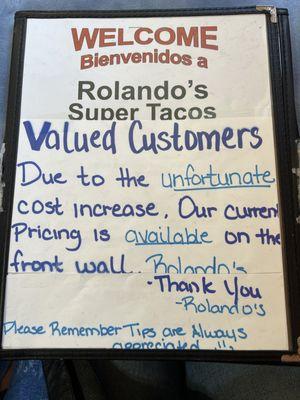 WELCOME
Bienvenidos a
Rolando's
Super Tacos
Valued Customers
Due to the unfortunate
cost increase. Our current
Pricing is available on the
front wall.. Rolando's
- Thank You
- Rolando's
Please Remember Tips are Always
appreciated !!!